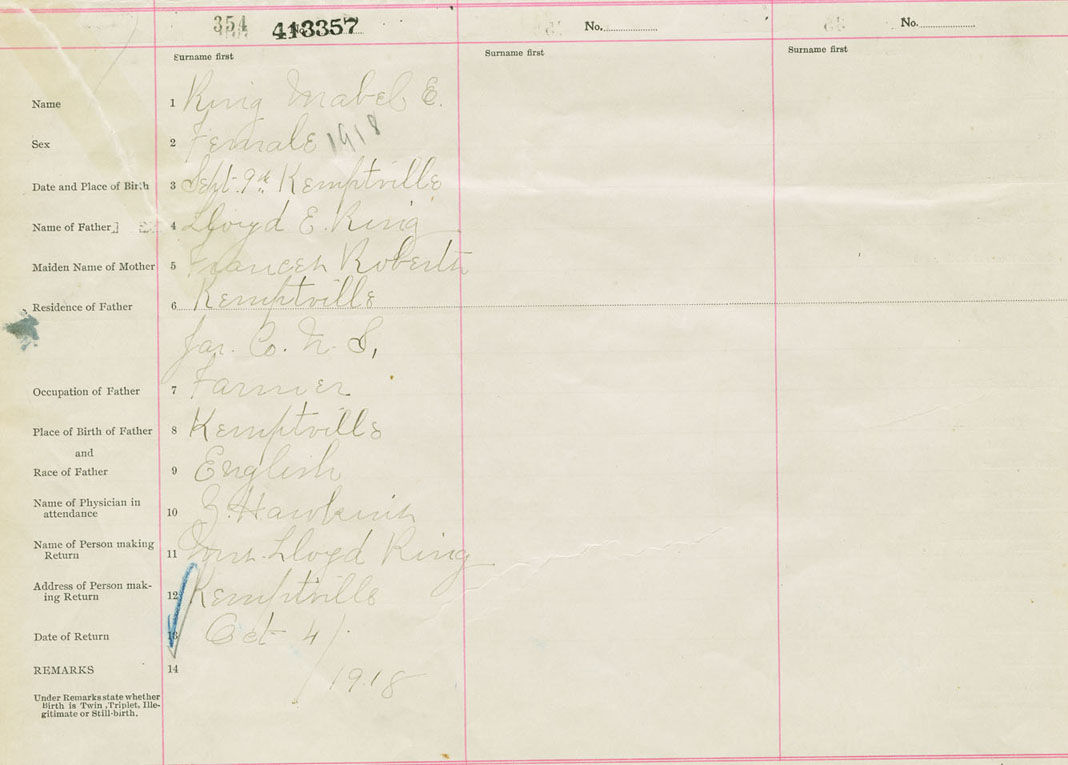 354 413357 No. No.
Surname first Surname first Surname first
Name 1 King Mabel E.
Sex 2 Female 1918
Date and Place of Birth 3 Sept. 9th Kemptville
Name of Father 4 Lloyd E. King
Maiden Name of Mother 5 Frances Roberts
Residence of Father 6 Kemptville
Yar. Co. N. S,
Occupation of Father 7 Farmer
Place of Birth of Father 8 Kemptville
and
Race of Father 9 English
Name of Physician in
attendance 10 Hawkins
Name of Person making
Return 11 Mrs. Lloyd King
Address of Person mak-
ing Return 12 Kemptville
Date of Return 13 Oct 4/
1918
REMARKS 14
Under Remarks state whether
Birth is Twin, Triplet, Ille-
gitimate or Still-birth.